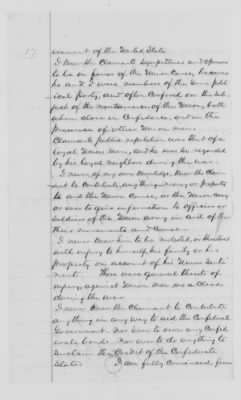 ernment of the United States
I knew the Claimants sympathies and opinions
to be in favor of the Union Cause, because
he and I were members of the same polit
ical party, and often Conferred on the Sub
ject of the maintenance of the Union, both
when alone in Confidence, and in the
presence of other Union men.
Claimants public reputation was that of a
loyal Union man, and he was so regarded
by his loyal neighbors during the war.
I never, of my own knowledge, knew the Claim
ant to Contribute, any thing money or property
to aid the Union Cause, or the Union Army
or ever to give information to officers or
Soldiers of the Union army in aid of
their movements and
I never knew him to be molested, or threatened
with injury to himself, his family or his
property on account of his Union Senti
ments. There were general threats of
injury against Union men as a class
during the war.
I never knew the Claimant to Contribute
anything in any way to aid the Confederate
Government. Nor ever to own any Confed
erate bonds. Nor ever to do anything to
Sustain the Credit of the Confederate
States. I am fully Convinced, from